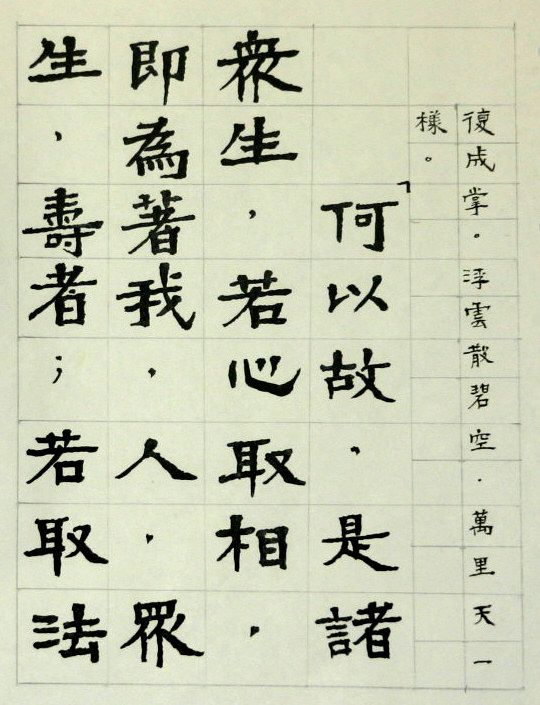 復成掌。浮雲散碧空．萬里天一
樣。
「何以故，是諸
衆生，若心取相，
即為著我，人，眾
生，壽者；若取法